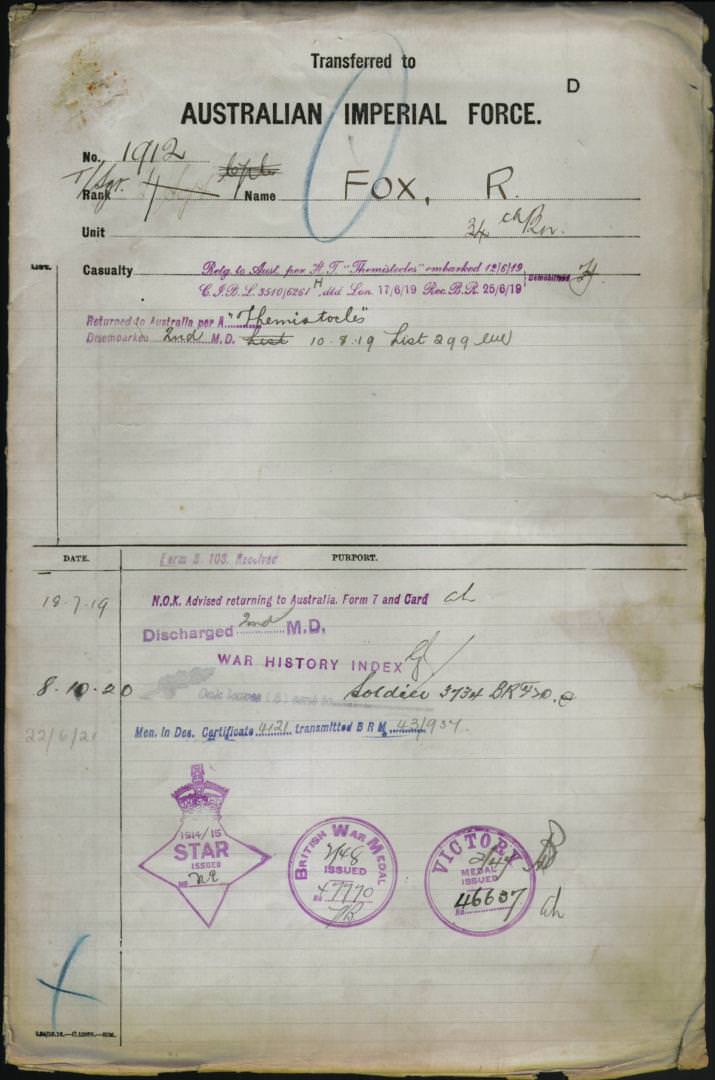 Transferred to
D
AUSTRALIAN IMPERIAL FORCE.
No. 1912
T/Sgr. Rank Cpl. Name FOX, R.
Unit 34th Bn.
Casualty Retg. to Aust. per H.T. "Themistocles" embarked 12/6/19
C.I.B.L. 3510/6261 H, dtd Lon. 17/6/19 Rec. B.R. 25/6/19
Returned to Australia per A "Themistocles"
Disembarked 2nd M.D. List 10.8.19 List 299
DATE. PURPORT.
Form B. 103. Received
18-7-19 N.O.K. Advised returning to Australia. Form 7 and Card
Discharged 2nd M.D.
WAR HISTORY INDEX
8.10.20 Soldier 3734
22/6/21 Men. in Des. Certificate 4121 transmitted B R M 43/937
1914/15
STAR
ISSUED
No
BRITISH WAR MEDAL
2/48
ISSUED
No 47770
VICTORY
2/47
MEDAL
ISSUED
No 46637